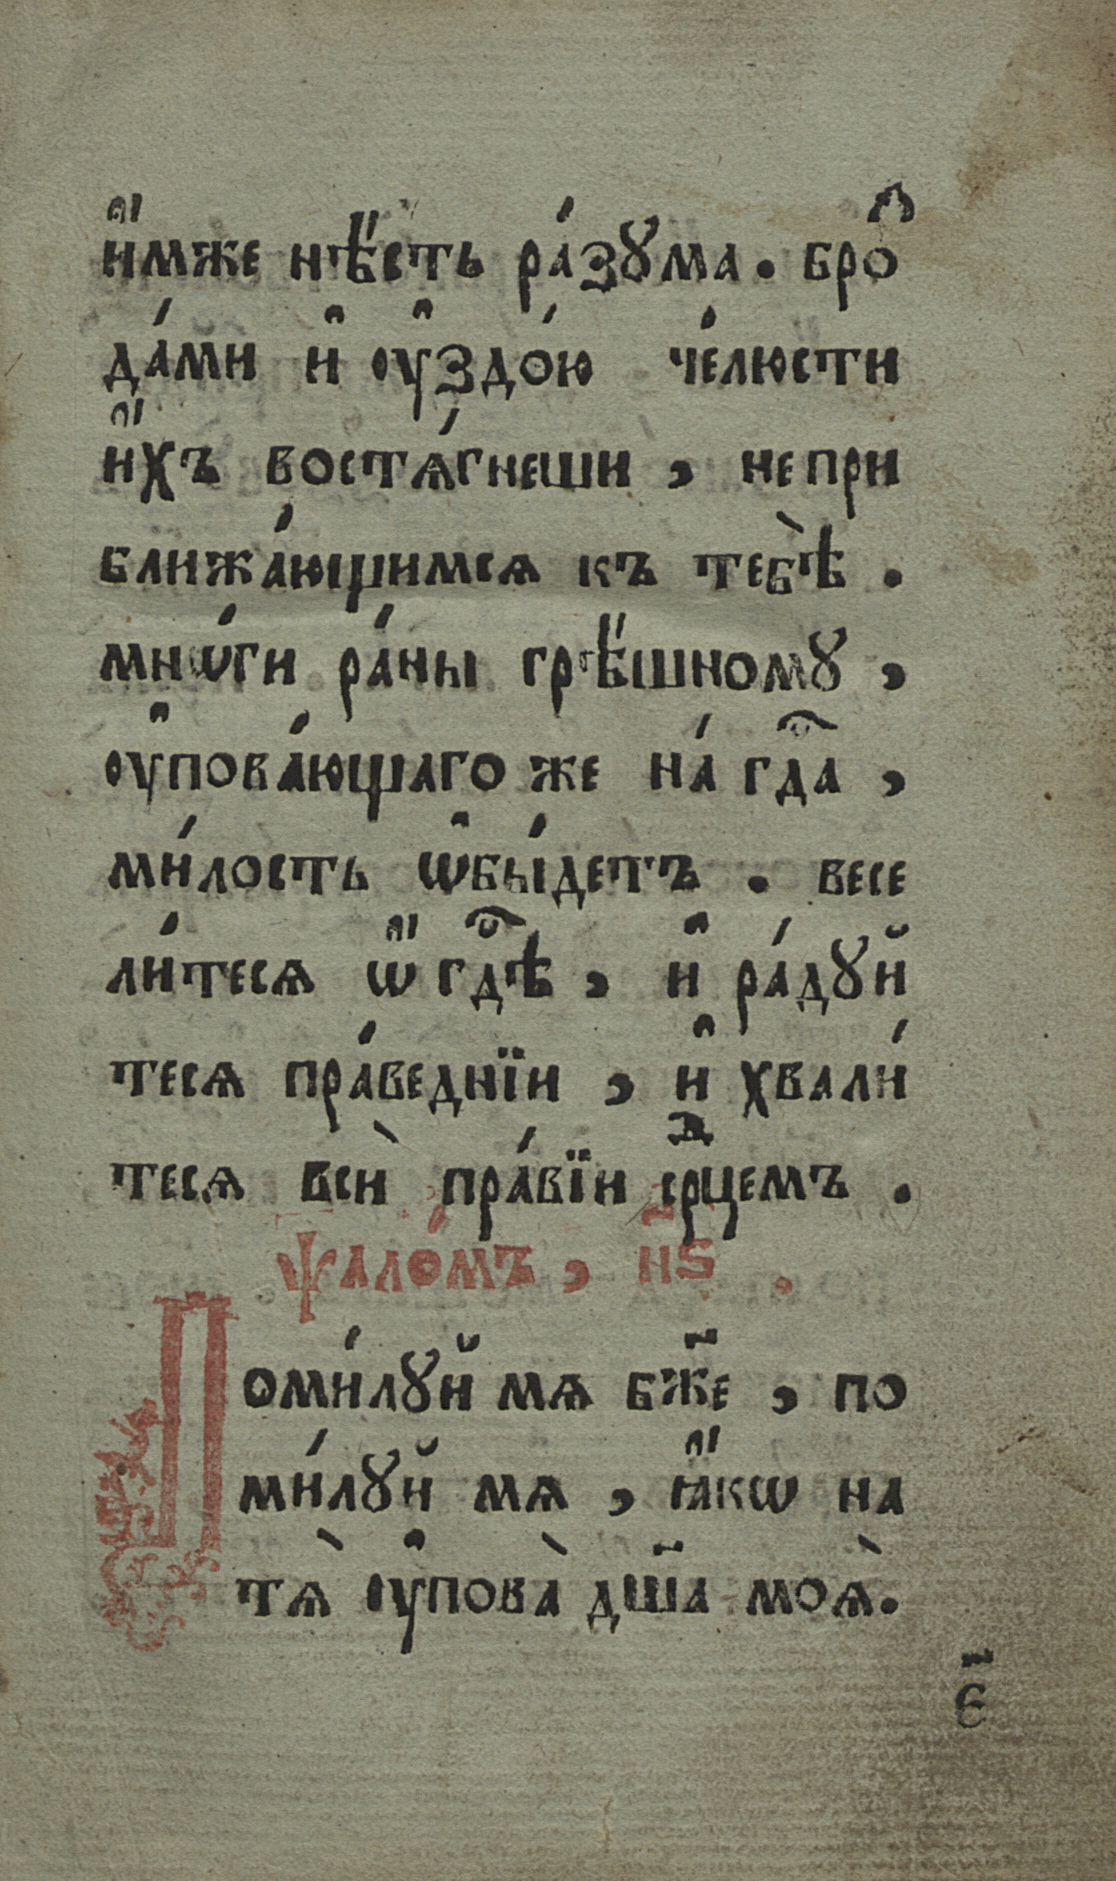 и҆́мже нѣ́сть ра́зꙋма. броз
да́ми и҆ ѹ҆здо́ю че́люсти
и҆́хъ востѧ́гнеши, не при
ближа́ющимсѧ къ тебѣ̀.
мнѡ́ги ра́ны грѣ́шномꙋ,
ѹ҆пова́ющаго же на́ гдⷭ҇а,
ми́лость ѡ҆бы́детъ. весе
ли́тесѧ ѡ҆́ гдⷭ҇ѣ, и҆ ра́дꙋй
тесѧ пра́веднїи, и҆ хвали́
тесѧ всѝ пра́вїи срⷣцемъ.
ѱало́мъ, н҃ѕ.
Поми́лꙋй мѧ бж҃е, по
ми́лꙋй мѧ, ꙗ҆́кѡ на
тѧ̀ ѹ҆пова̀ дш҃а моѧ̀.
є҃